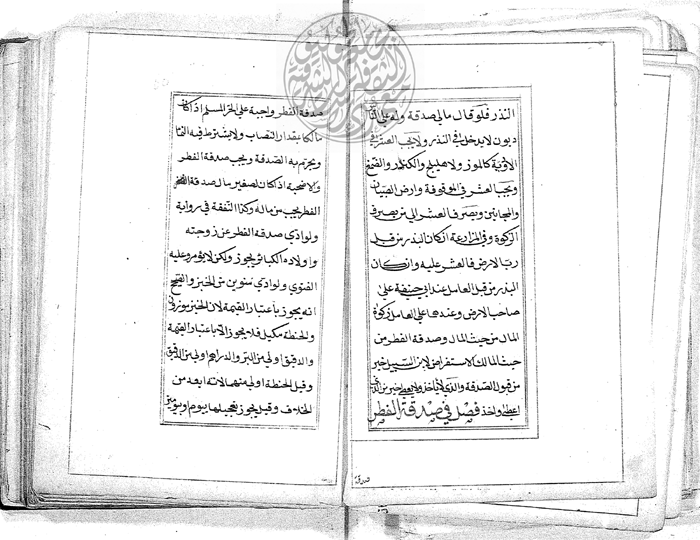 النذر فلو قال مالي صدقة وله على الناس
ديون لا يدخل في النذر ولا يجب العشر في
الادوية كالموز والاهليلج والكندر والصمغ
ويجب العشر في الموقوفة وارض الصبيان
والمجانين ويصرف العشر الى من يصرف
الزكوة وفي المزارعة ان كان البذر من قبل
رب الارض فالعشر عليه وان كان
البذر من قبل العامل عند ابي حنيفة على
صاحب الارض وعندهما على العامل زكوة
المال من حيث المال وصدقة الفطر من
حيث المالك الاستقراض لابن السبيل خير
من قبول الصدقة والذي لا ياخذ ولا يعطي خير من الذي
اعطى واخذ فصل في صدقة الفطر
صدقة
صدقة الفطر واجبة على الحر المسلم اذا كان
مالكا بمقدار النصاب ولا يشترط فيه النما
ويحرم به الصدقة ويجب صدقة الفطر
والاضحية اذا كان لصغير مال صدقة
الفطر يجب من ماله وكذا النفقة في رواية
ولو ادى صدقة الفطر عن زوجته
واولاده الكبار يجوز ولكن لا يؤمر وعليه
الفتوى ولو ادى منوين من الخبز والصحيح
انه يجوز باعتبار القيمة لان الخبز موزون
والحنطة مكيل فلا يجوز الا باعتبار القيمة
والدقيق اولى من البر والدراهم اولى من الدقيق
وقيل الحنطة اولى منهما لانه ابعد من
الخلاف وقيل يجوز تعجيلها بيوم او يومين